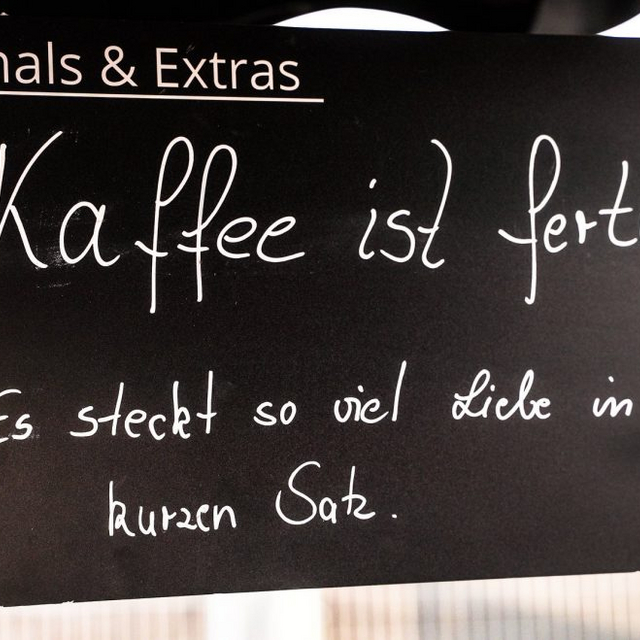 nals & Extras
Kaffee ist ferti
Es steckt so viel Liebe in
kurzen Satz.